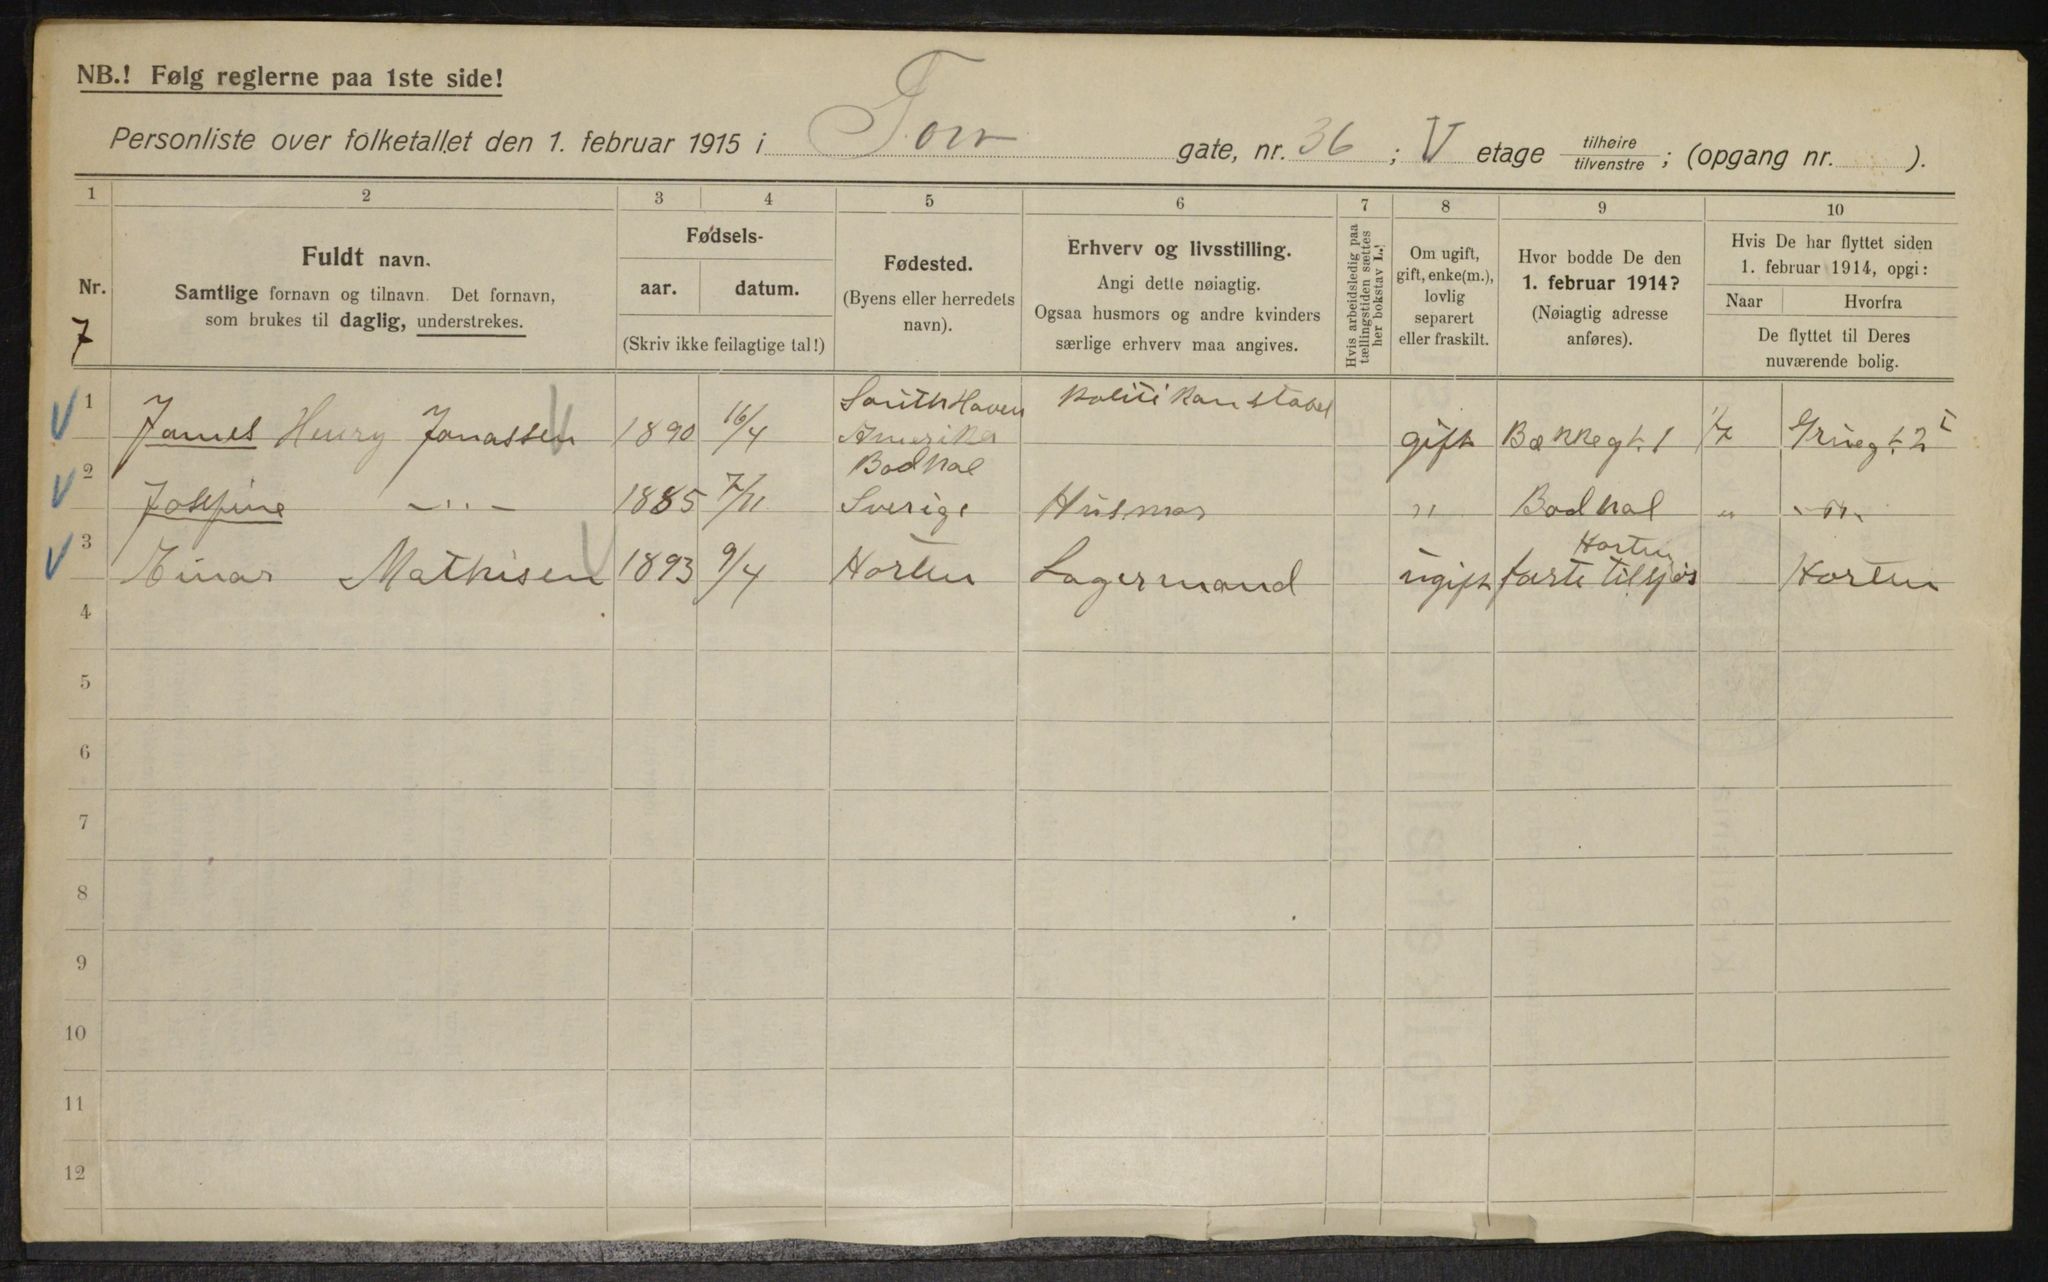 NB.! Følg reglerne paa 1ste side!
Personliste over folketallet den 1. februar 1915 i Torv gate, nr. 36 ; V etage tilhøire/tilvenstre ; (opgang nr. ).
1 2 3 4 5 6 7 8 9 10
Nr.
7
Fuldt navn.
Samtlige fornavn og tilnavn. Det fornavn,
som brukes til daglig, understrekes.
Fødsels-
aar. datum.
(Skriv ikke feilagtige tal!)
Fødested.
(Byens eller herredets
navn).
Erhverv og livsstilling.
Angi dette nøiagtig.
Ogsaa husmors og andre kvinders
særlige erhverv maa angives.
Hvis arbeidsledig paa
tællingstiden sættes
her bokstav L.!
Om ugift,
gift, enke(m.),
lovlig
separert
eller fraskilt.
Hvor bodde De den
1. februar 1914?
(Nøiagtig adresse
anføres).
Hvis De har flyttet siden
1. februar 1914, opgi:
Naar Hvorfra
De flyttet til Deres
nuværende bolig.
South Haven Politikonstabel
1 James Henry Jonassen 1890 16/4 Amerika gift Bakkegt. 1 1/7 Gruegt. 2
Bodhal
2 Josefine -"- 1885 7/11 Sverige Husmor " Bodhal " -"-
Horten
3 Einar Mathisen 1893 9/4 Horten Lagermand ugift farte tilsjøs Horten
4
5
6
7
8
9
10
11
12